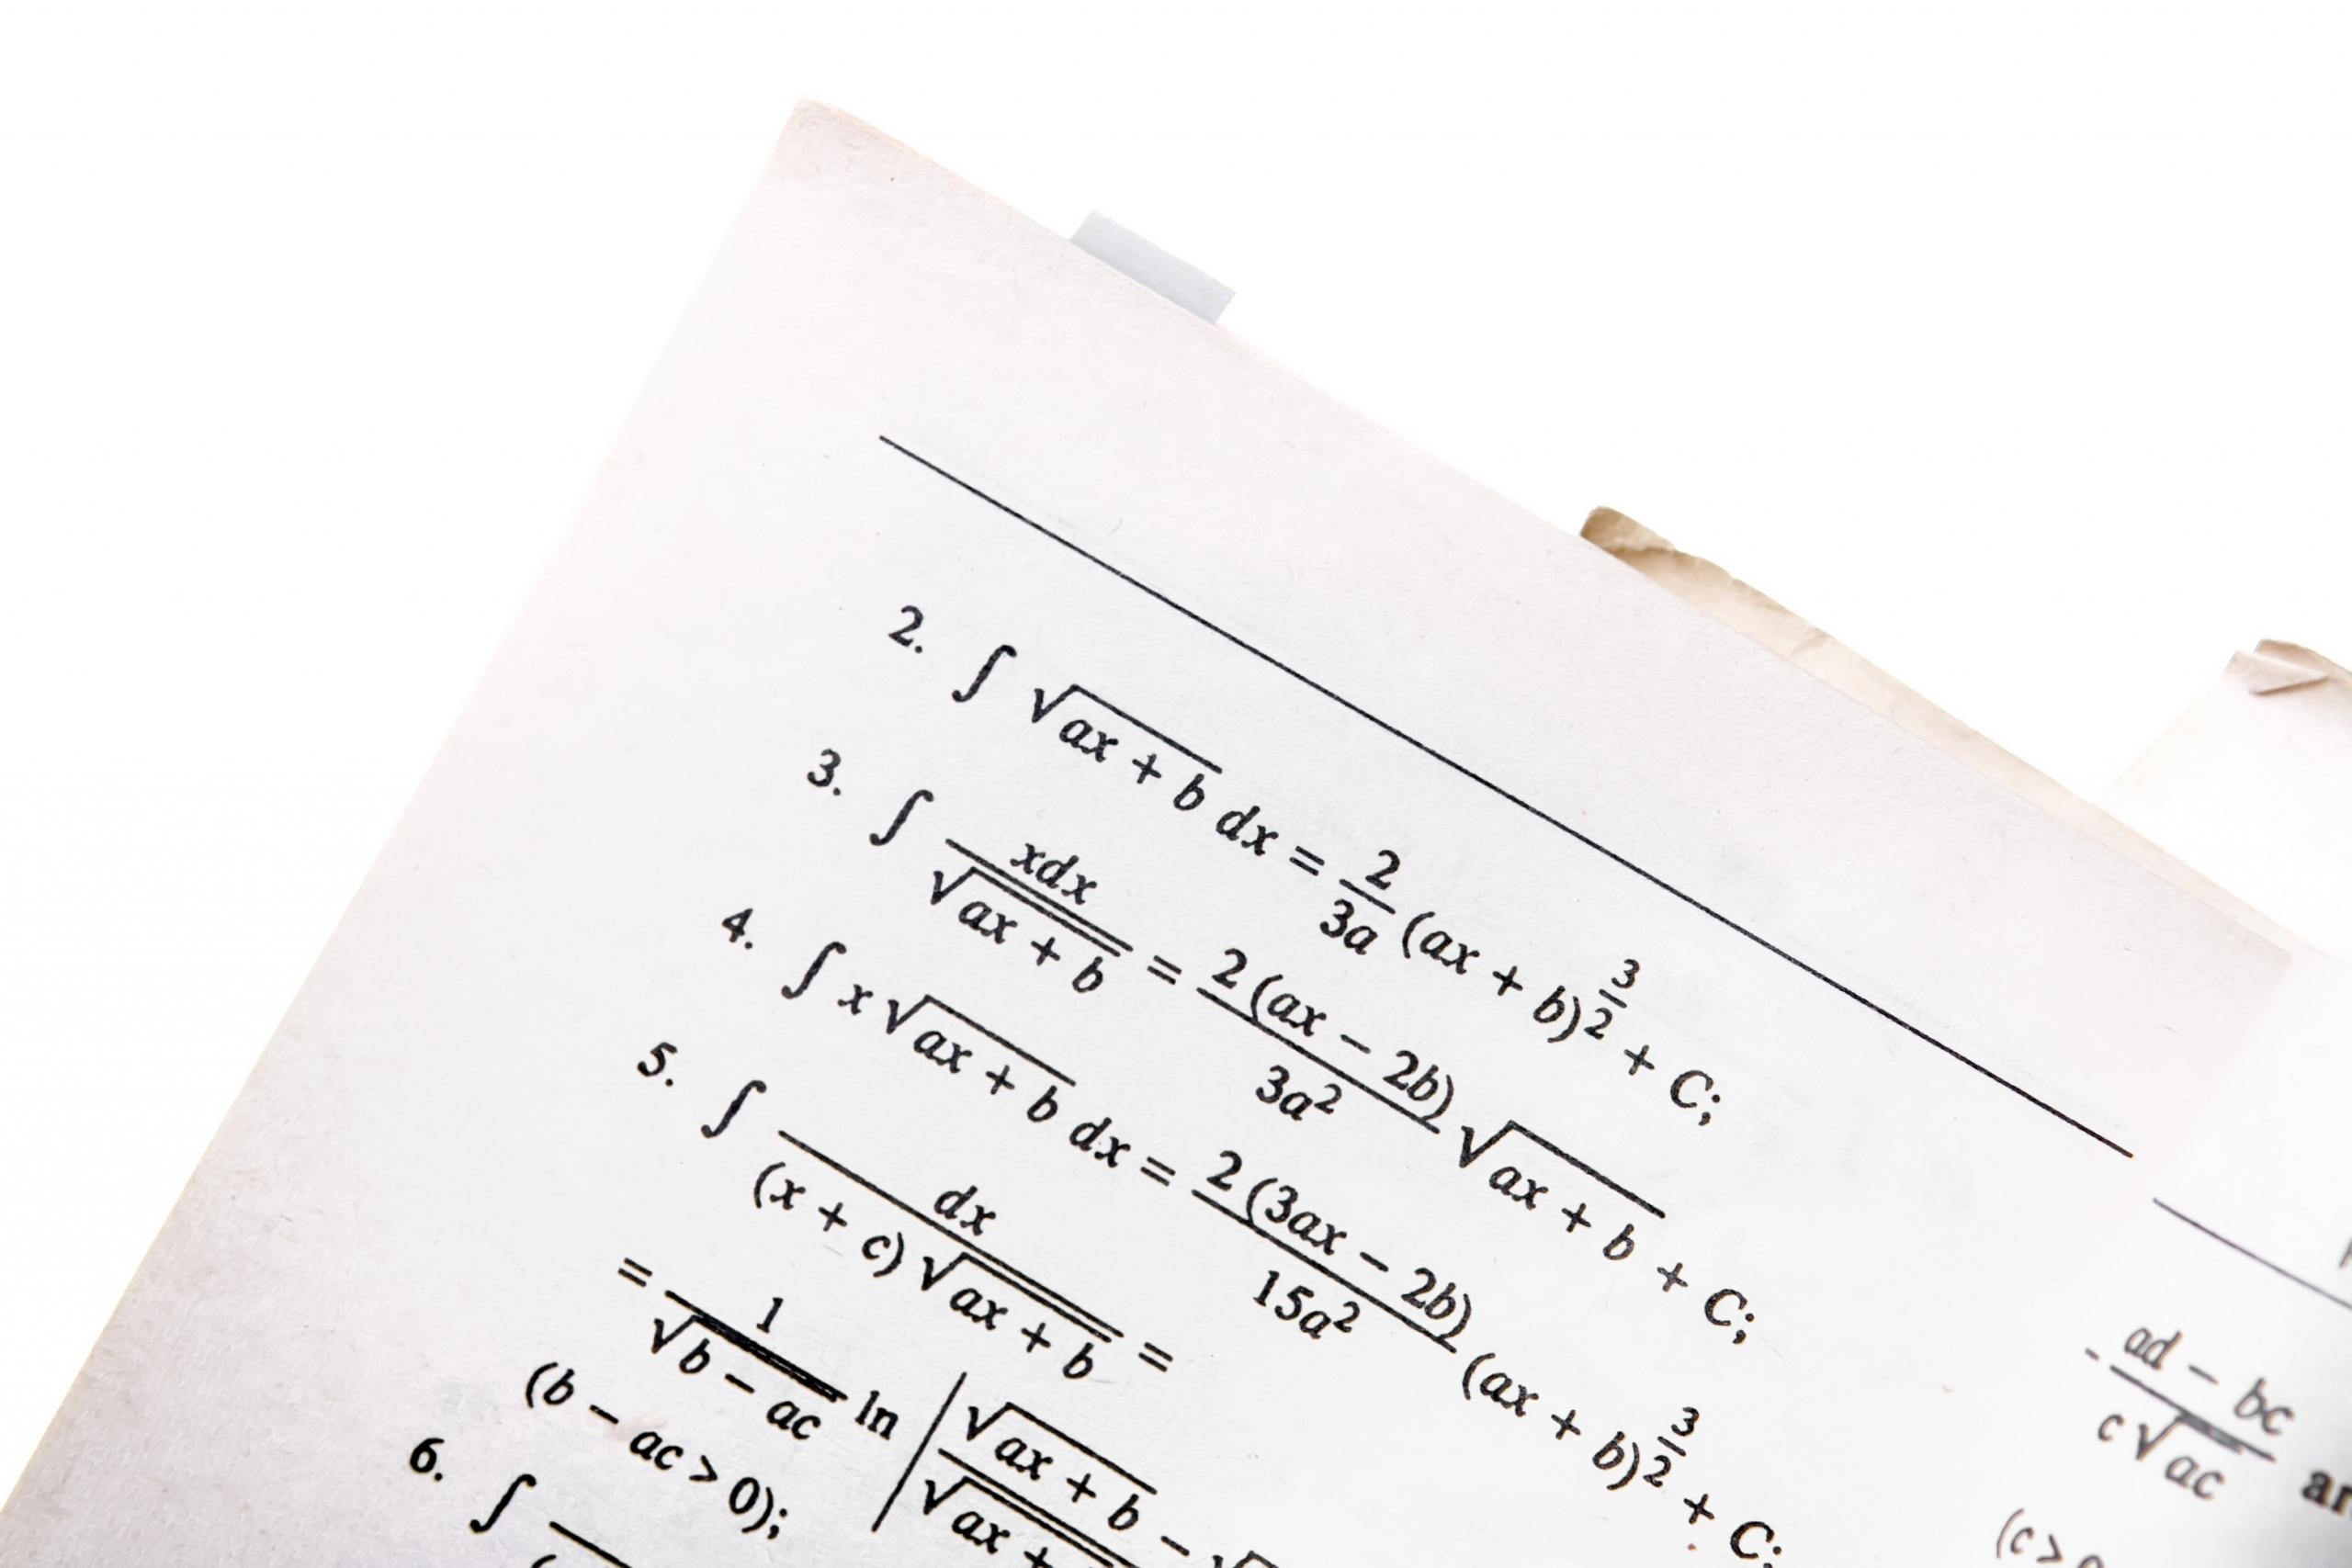 2. ∫ √(ax + b) dx = 2/3a (ax + b)^(3/2) + C;
3. ∫ xdx/√(ax + b) = 2(ax − 2b)/3a² √(ax + b) + C;
4. ∫ x√(ax + b) dx = 2(3ax − 2b)/15a² (ax + b)^(3/2) + C;
5. ∫ dx/(x + c)√(ax + b) =
= 1/√(b − ac) ln | √(ax + b) − √ / √(ax +
(b − ac > 0);
6. ∫
- ad − bc/c√(ac)
(c >